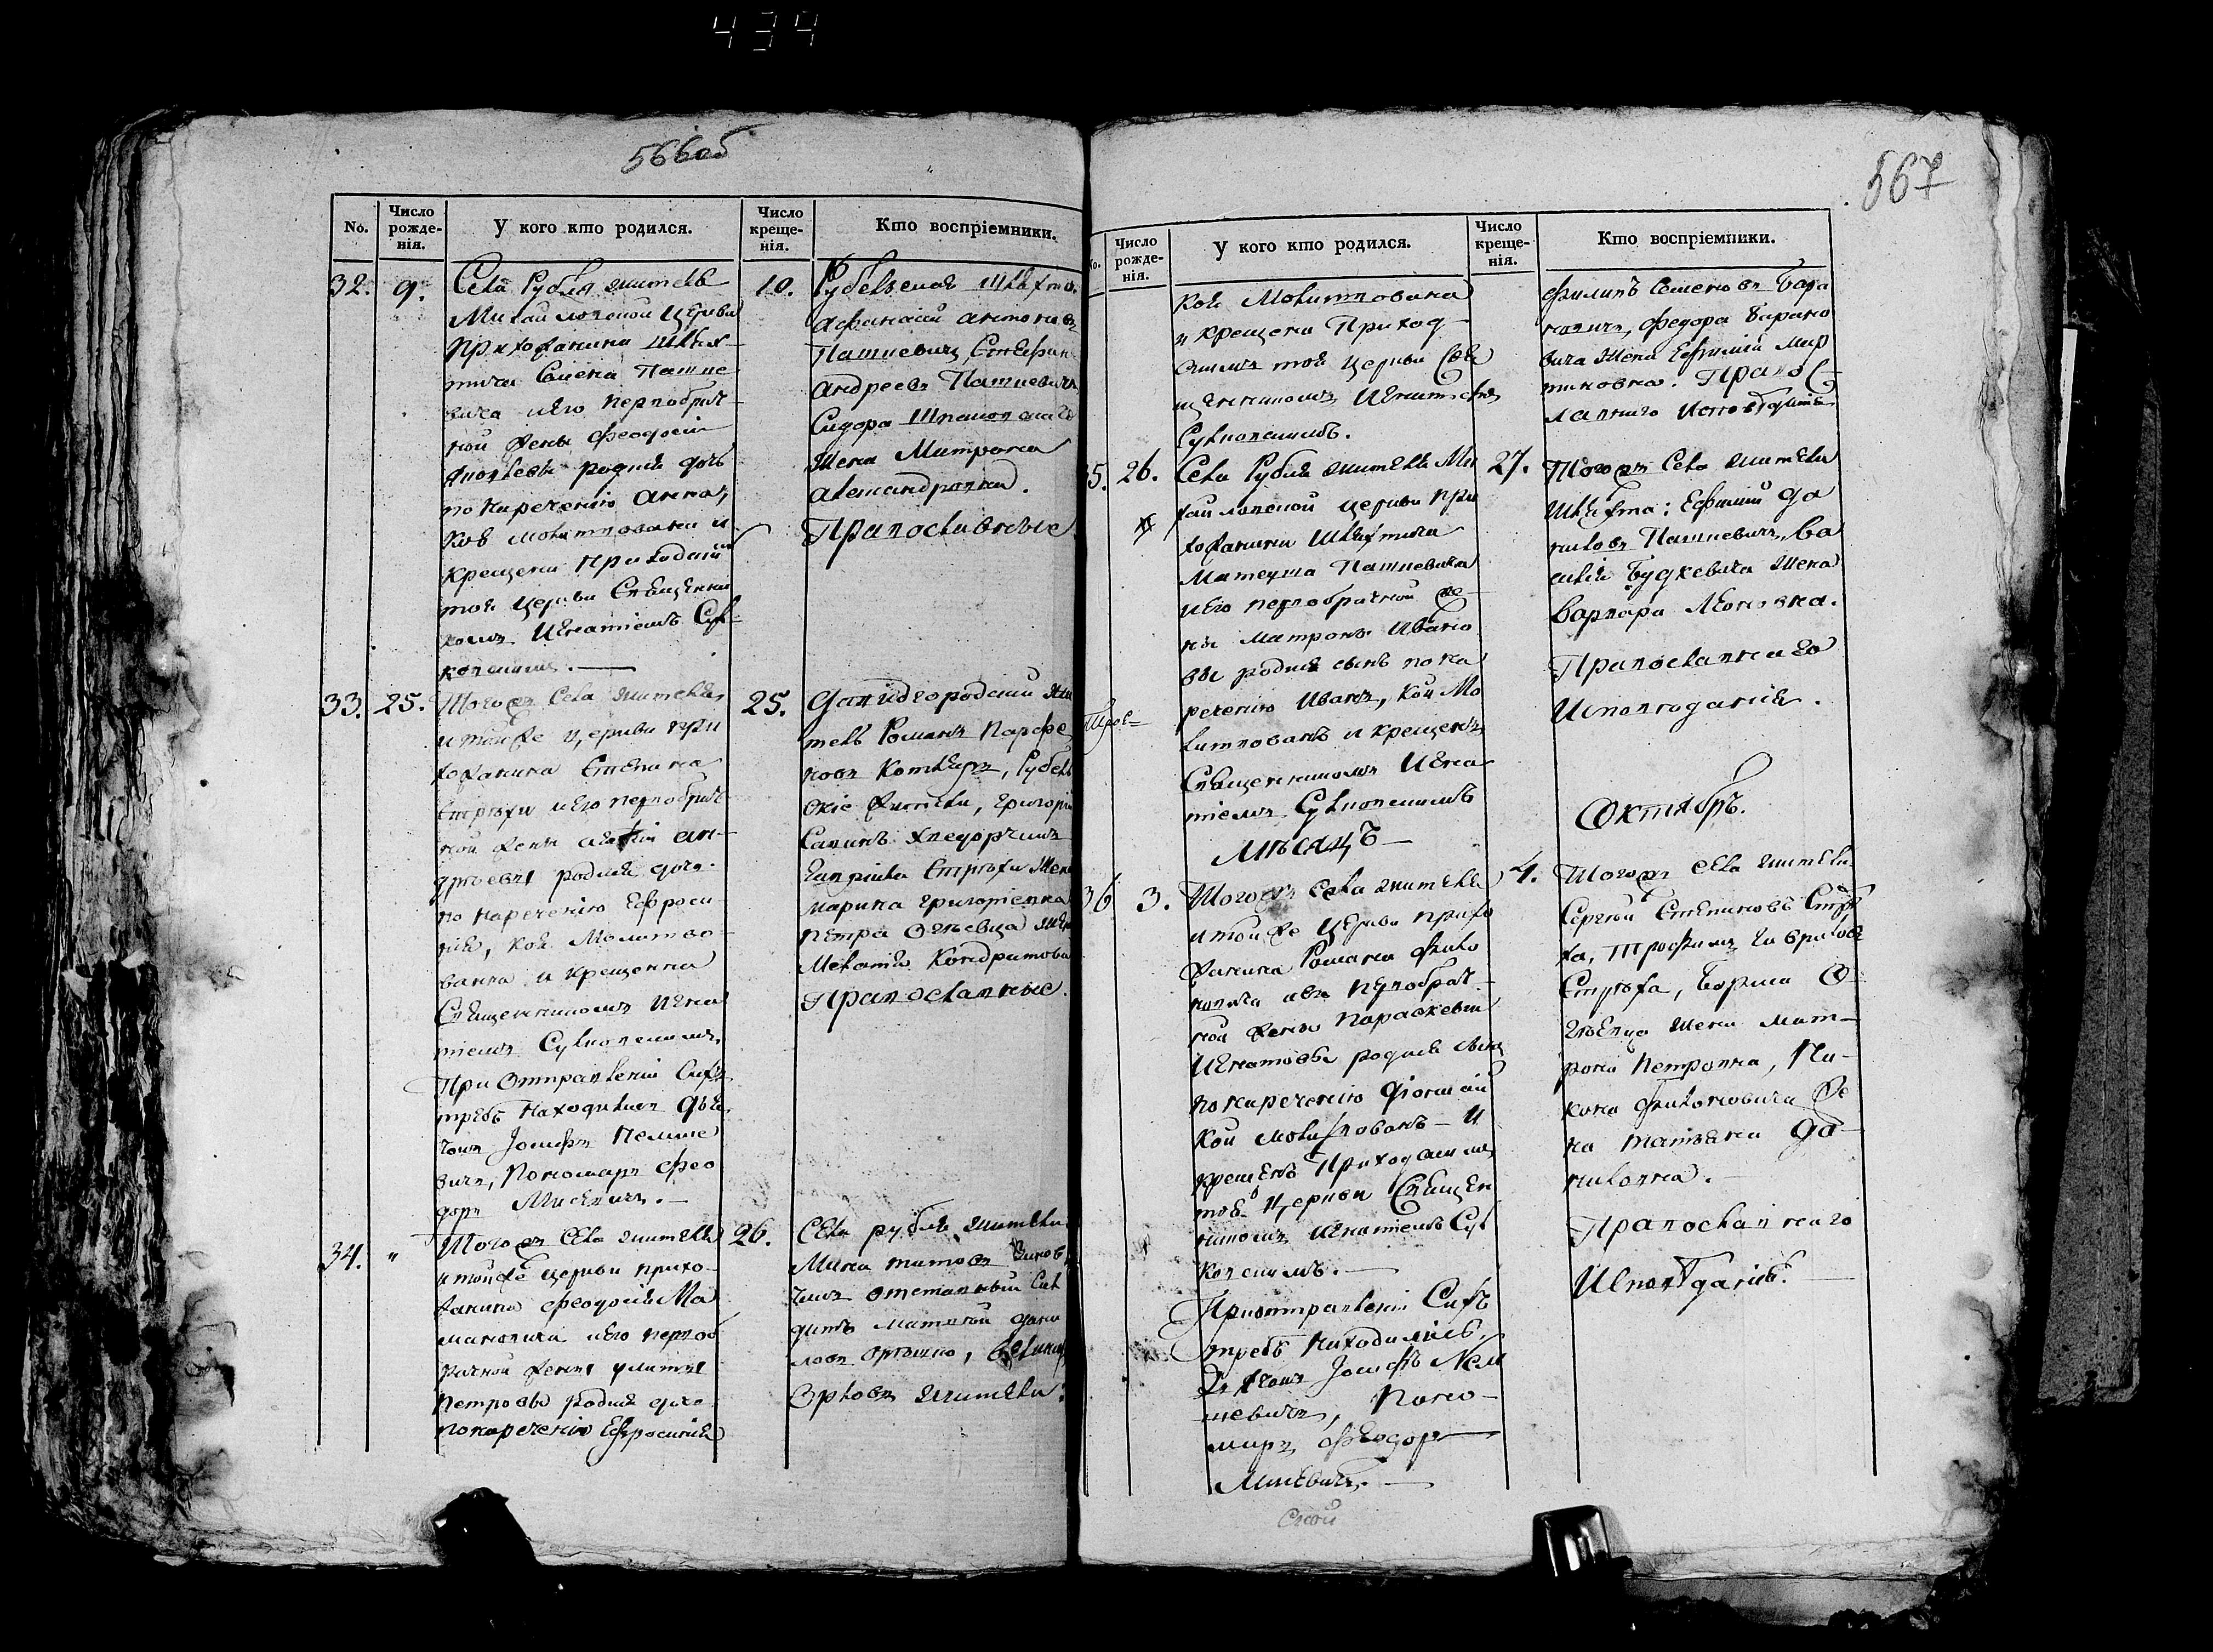 434
566об
No.
Число рожде-нія.
У кого кто родился.
Число креще-нія.
Кто воспріемники.
32.
9.
Села Рубля житель
Михайловской Церкви
прихожанина Шлях-
тича Семена Пашке
вича и его первобрач-
ной жены Феодосіи
родися дочь
по наречению Анна,
коя молитвована и
крещена приходскимъ
тоя церкви Священни
комъ Игнатіемъ Сул-
ковскимъ.
10.
Рубельскіе Шляхта
Афанасій Антоновъ
Пашкевичъ Стефан
Андреевъ Пашкевича
Сидора
жена Матрона
Александровна.
Православные
33.
25.
Тогожъ Села житель
и тойже церкви при
хожанина Степана
Стрѣхи и его первобрач
ной жены Агафіи Ан-
дреевы родися дочь
по наречению Ефроси
нія, коя Молитво
ванна и крещенна
Священникомъ Игна
тіемъ Сулковскимъ,
При Отправленіи Сихъ
требъ Находились Дья
чокъ Іосифъ Немше
вичъ, Пономарь Фео
доръ Мисевичъ.
25.
Давидгородскій жи
тель Романъ Парфе
новъ Котляръ, Рубель
скіе жители, Григорій
Савинъ
Гавріила Стрѣхи жена
Марина Григоріевна
Петра Огіевца жена
Меланія Кондратова
Православные.
34.
"
Тогожъ Села житель
и тойже церкви прихо-
жанина Феодосія Ма
мановича и его первоб
рачной жены Улиты
Петровы родися дочь
по наречению Ефросинія
26.
Села Рубля жители
Мина Титовъ
отставный Сол
датъ Матвѣй Дани
ловъ
жители:
567
No.
Число рожде-нія.
У кого кто родился.
Число креще-нія.
Кто воспріемники.
коя Молитвована
и крещена Приход-
скимъ тоя церкви Свя
щенникомъ Игнатіемъ
Сулковскимъ.
Филипъ Семеновъ Бара
новичъ, Федора Барано
вича жена Ефимія Мар
тиновна. Право С
лавнаго Исповѣданія
35.
26.
Села Рубля житель Ми
хайловской церкви при
хожанина Шляхтича
Матеуша Пашкевича
и его первобрачной же-
ны Матроны Ивано
вы родися сынъ по на
речению Иванъ, кой Мо
литвованъ и крещенъ
Священникомъ Игна
тіемъ Сулковскимъ
27.
Тогожъ Села жители
Шляхта: Ефимій Да
ниловъ Пашкевичъ, Ва
силія Будкевича жена
Варвара Леоновна.
Православнаго
Исповѣданія.
Мѣсяцъ –
Октябрь.
36
3.
Тогожъ Села житель
и тойже Церкви прихо
жанина Романа Фило
новича и его первобрач-
ной жены Параскевы
Игнатовы родися сынъ
по наречению Діонисій
кой молитвованъ – и
крещенъ Приходскимъ
тоя Церкви Священ
никомъ Игнатіемъ Сул
ковскимъ.
При отправленіи Сихъ
требъ Находились,
Дьячокъ Іосифъ Нем
шевичъ, Поно-
марь Феодоръ
Мисевичъ.
4.
Тогожъ Села жители
Сергей Степановъ Стрѣ
ха, Трофимъ Гавриловъ
Стрѣха, Бориса О-
гіевца жена Мат-
рона Петровна, Ни-
кона Филоновича же
на Татьяна Да-
ниловна.
Православнаго
Исповѣданія.